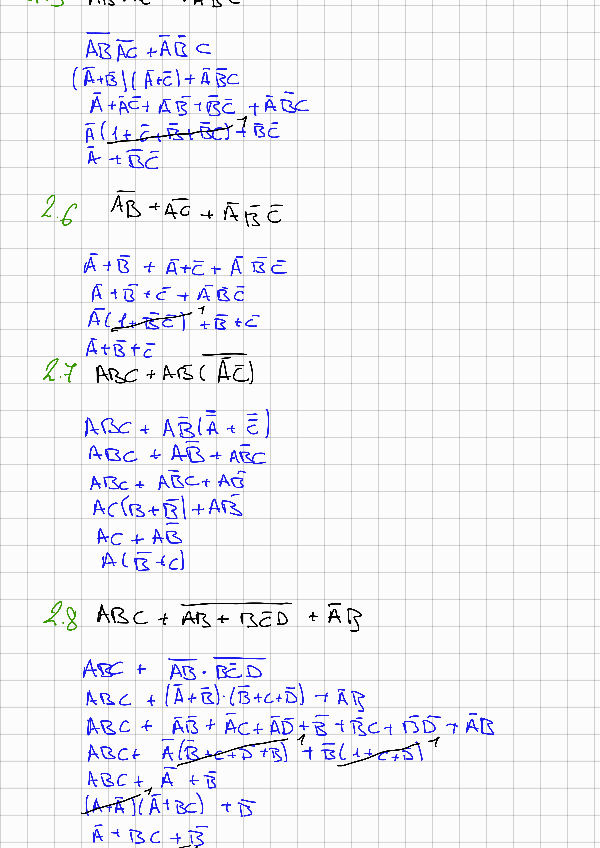 A̅B̅ A̅C̅ + A̅ B̅ C
(A̅+B̅)(A̅+C̅) + A̅ B̅C
A̅ + A̅C̅ + A̅B̅ + B̅C̅ + A̅B̅C
A̅(1 + C̅ + B̅ + B̅C)¹ + B̅C̅
A̅ + B̅C̅
2.6 A̅B̅ + A̅C̅ + A̅ B̅ C̅
A̅ + B̅ + A̅ + C̅ + A̅ B̅ C̅
A̅ + B̅ + C̅ + A̅ B̅C̅
A̅(1 + B̅C̅)¹ + B̅ + C̅
A̅ + B̅ + C̅
2.7 ABC + AB̅(A̅̅ ̅C̅̅)
ABC + AB̅(A̿ + C̿)
ABC + AB̅ + AB̅C
ABC + AB̅C + AB̅
AC(B + B̅) + AB̅
AC + AB̅
A(B̅ + C)
2.8 ABC + A̅B̅ ̅+̅ ̅B̅C̅̅D̅ + A̅B
ABC + A̅B̅ · B̅C̅̅D̅
ABC + (A̅ + B̅)·(B̅ + C + D̅) + A̅B
ABC + A̅B̅ + A̅C + A̅D̅ + B̅ + B̅C + B̅D̅ + A̅B
ABC + A̅(B̅ + C + D̅ + B)¹ + B̅(1 + C + D̅)¹
ABC + A̅ + B̅
(A + A̅)¹(A̅ + BC) + B̅
A̅ + BC + B̅